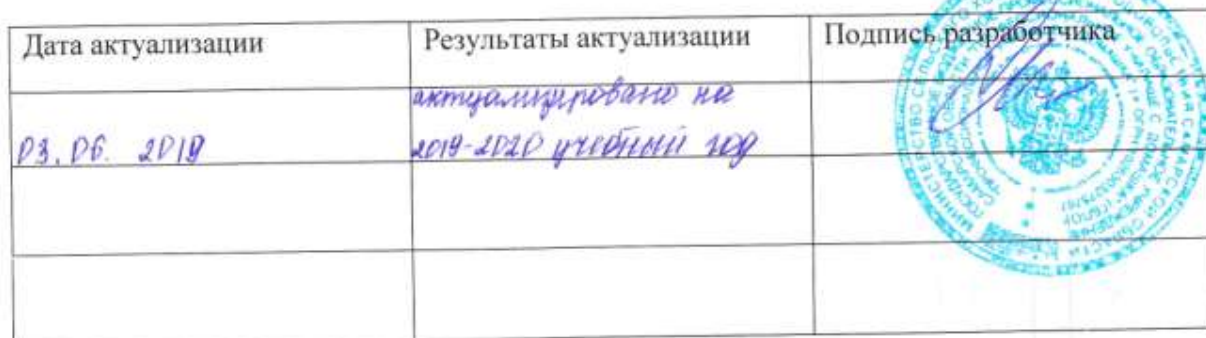 Дата актуализации
Результаты актуализации
Подпись разработчика
03.06. 2019
актуализировано на
2019-2020 учебный год